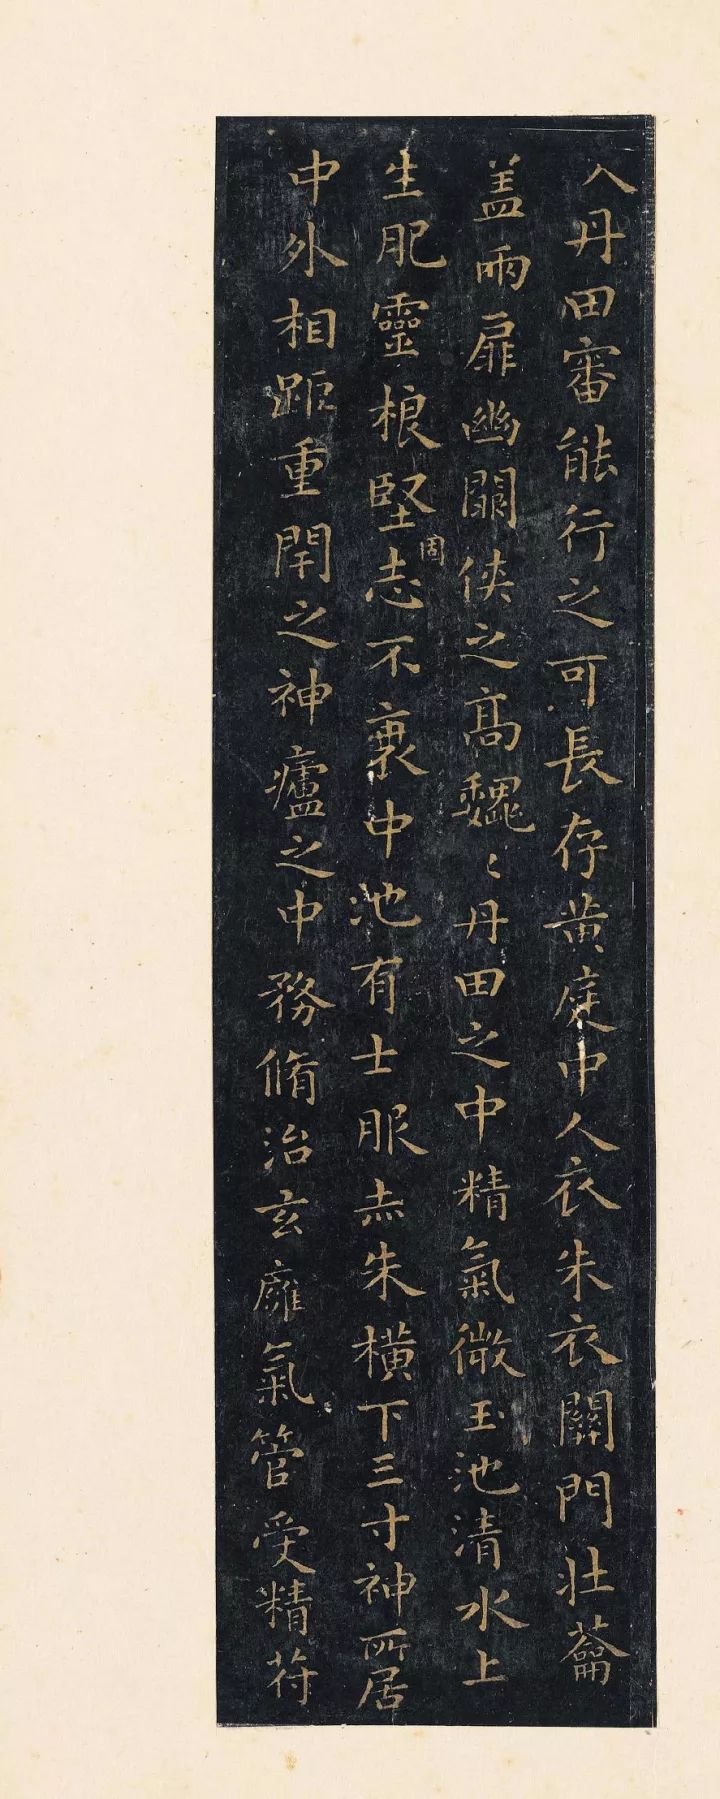 入丹田審能行之可長存黃庭中人衣朱衣關門壯蘥
盖兩扉幽闕俠之高巍〻丹田之中精氣微玉池清水上
生肥靈根堅固志不衰中池有士服赤朱橫下三寸神所居
中外相距重閇之神廬之中務脩治玄㢕氣管受精符